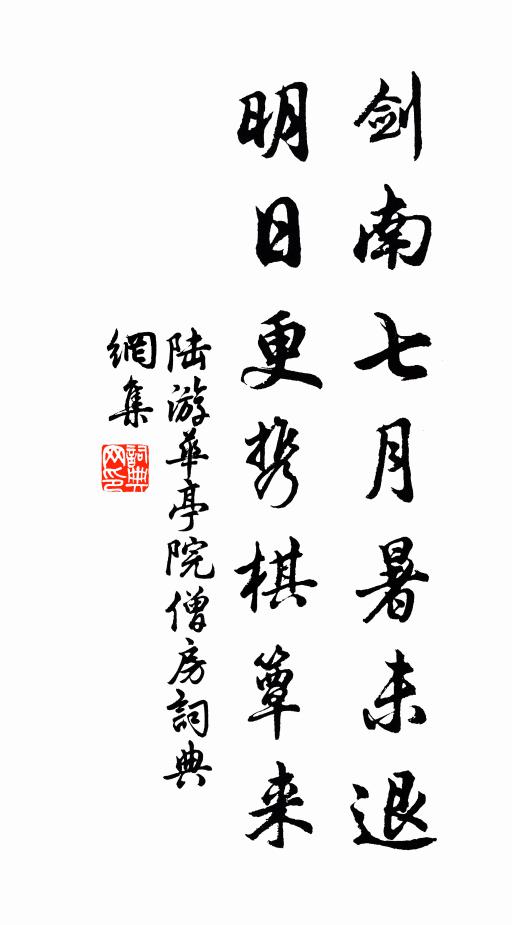 剑南七月暑未退
明日更携棋簟来
陆游华亭院僧房詞典
網集
詞典
网印